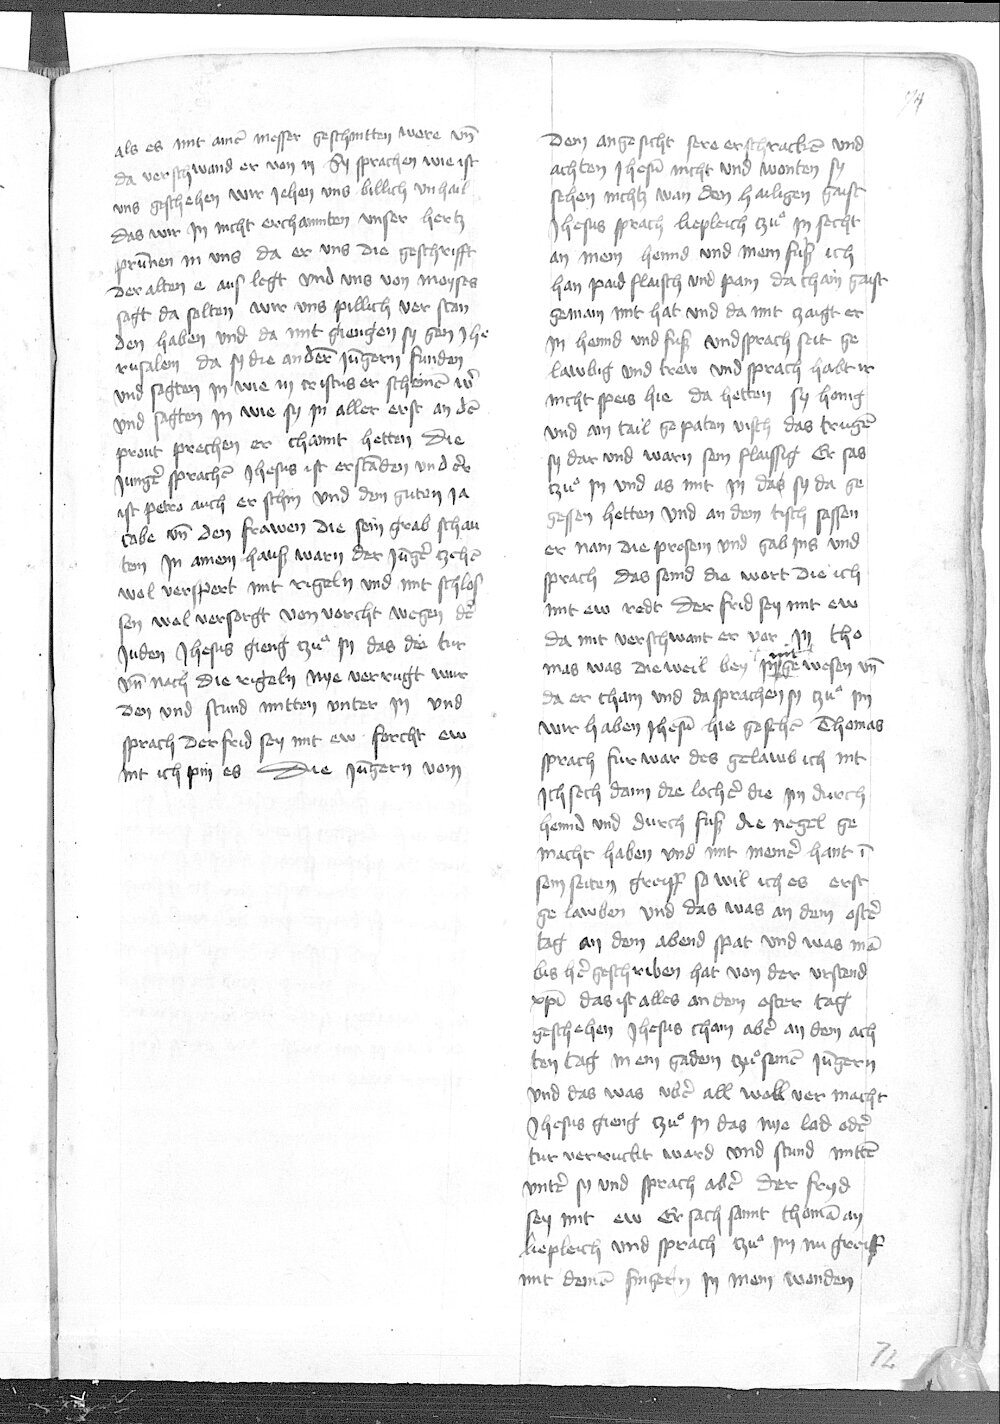 74
als es mit ainē messer geschnitten were vn̄
da verschwand er von in Sy sprachen wie ist
vns geschehen wir Jehen vns billich vnhail
das wir in nicht erchannten vnser hertz
prūnen in vns da er vns die geschrifft
Der alten e aus legt Vnd vns von moyses
sagt da solten wir vns pillich ver stan
den haben vnd da mit giengen sy gen Jhe
rusalem da sy die anderē Jūgern funden
vnd sagten in wie in cristus er scheinē wer̄
Vnd sagten in wie sy in aller erst an dē
prout prechen er channt hetten Die
Jungē sprachē Jhesus ist erstādē vnd er
ist petro auch er schin Vnd dem guten Ja
cobe vn̄ den frawen Die sein grab schau
ten In ainem hauß warn der Jūgē zehē
wol verspert mit rigeln vnd mit schlos
sen wol versorgt von vorcht wegen der̄
Juden Jhesus gieng czuͦ in das die tur
vn̄ nach die rigeln nye verrugt wur
den vnd stund mitten vnter in vnd
sprach Der frid sey mit ew forcht ew
nit ich pin es Die Jūgern vom
dem angesicht sere erschrackē vnd
achten Jhesū nicht vnd wonten sy
sehen nichtz wan den hailigen gaist
Jhesus sprach liepleich czuͦ in secht
an mein hennd vnd mein fuß ich
han paid flaisch vnd pain da chain gaist
gemain mit hat vnd da mit zaigt er
in hennd vnd fuß vnd sprach seit ge
lawbig vnd trew vnd sprach habt ir
nicht speis hie da hetten sy honig
vnd ain tail gepraten visch das trugē
sy dar vnd warn sein flaissig Er sas
czuͦ in vnd as mit in das sy da ge
gessen hetten Vnd an dem tisch sassen
er nam die prosem vnd gab ins vnd
sprach das seind die wort Die ich
mit ew redt Der frid sey mit ew
da mit verschwant er vor in tho
mas was die weil bey in nit gewesen vn̄
da er cham vnd da sprachen sy czuͦ im
wir haben Jhesū hie gesehē Thomas
sprach fur war des gelawb ich nit
Ich sech dann die locher̄ die im durch
hennd vnd durch fuß die negel ge
macht haben vnd mit meiner̄ hant ī
sein seiten greiff so wil ich es erst
gelawben vnd das was an dem oster̄
tag an dem abend spat Vnd was mā
bis her̄ geschriben hat von der vrstend
xpī das ist alles an dem oster tag
geschehen Jhesus cham aber̄ an dem ach
ten tag in ein gadem czuͦ seinē Jūgern
vnd das was vber̄ all woll ver macht
Jhesus gieng czuͦ in das nye lad oder̄
tur verruckt ward Vnd stund mittē
vnter̄ sy vnd sprach aber̄ Der fryd
sey mit ew Er sach sannt thomā an
liepleich vnd sprach czuͦ im nu greiff
mit deinē fingern in mein wonden
72